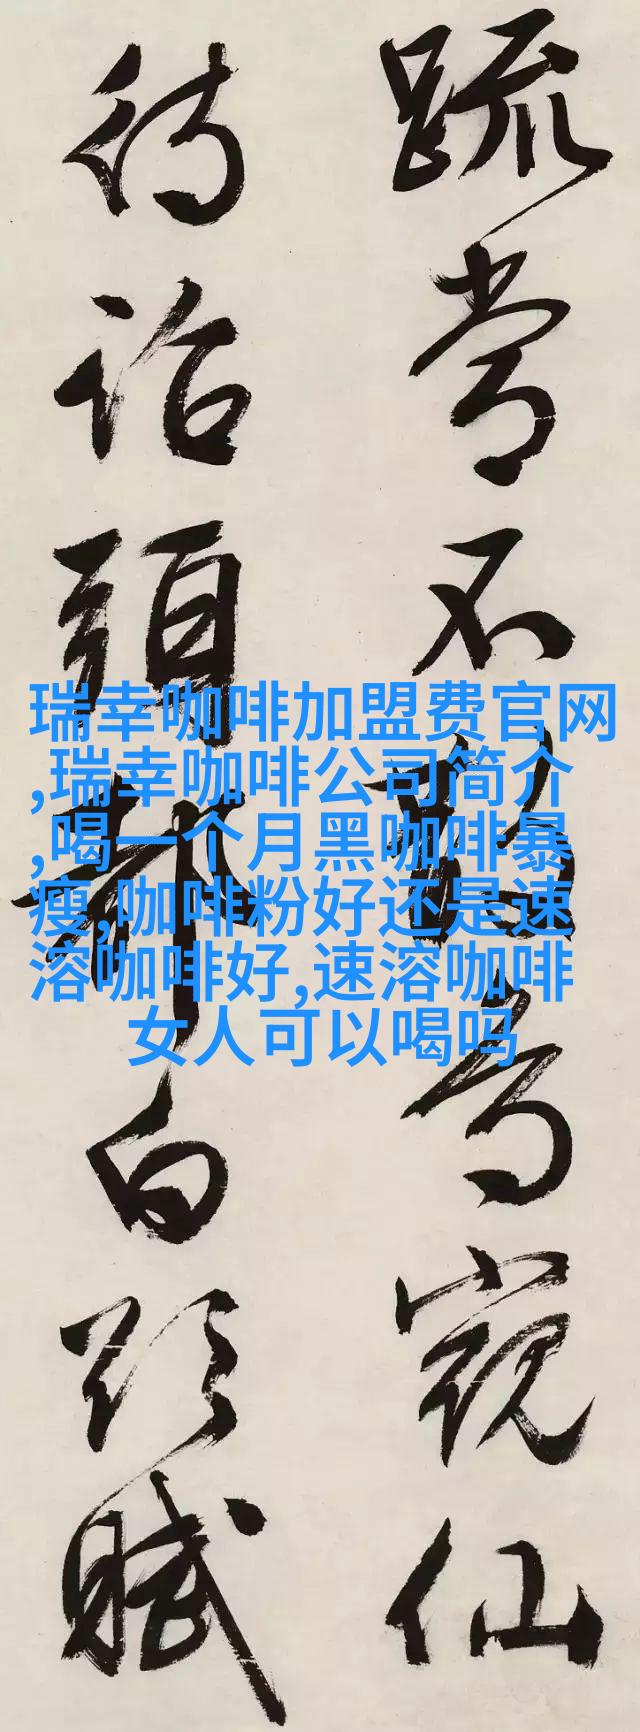 疏常不窺仙
待詔頭都白賦
瑞幸咖啡加盟费官网
,瑞幸咖啡公司简介
,喝一个月黑咖啡暴
瘦,咖啡粉好还是速
溶咖啡好,速溶咖啡
女人可以喝吗